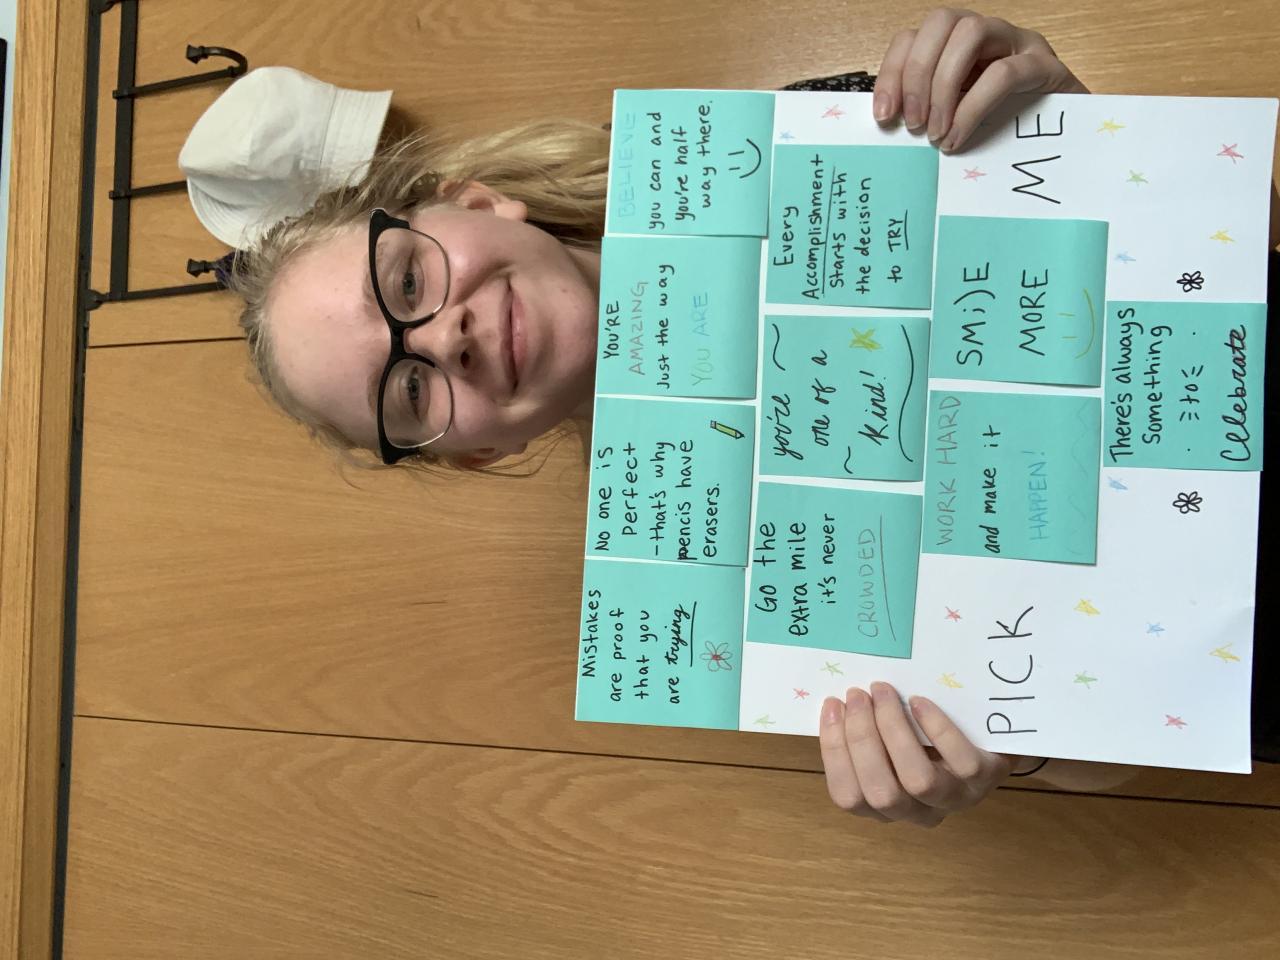 Mistakes
are proof
that you
are trying
No one is
perfect
-that's why
pencis have
erasers.
YOU'RE
AMAZING
Just the way
YOU ARE
BELIEVE
you can and
you're half
way there.
GO the
extra mile
it's never
CROWDED
you're
one of a
kind!
Every
Accomplishment
starts with
the decision
to TRY
PICK
WORK HARD
and make it
HAPPEN!
SM;)E
MORE
ME
There's always
Something
to
Celebrate